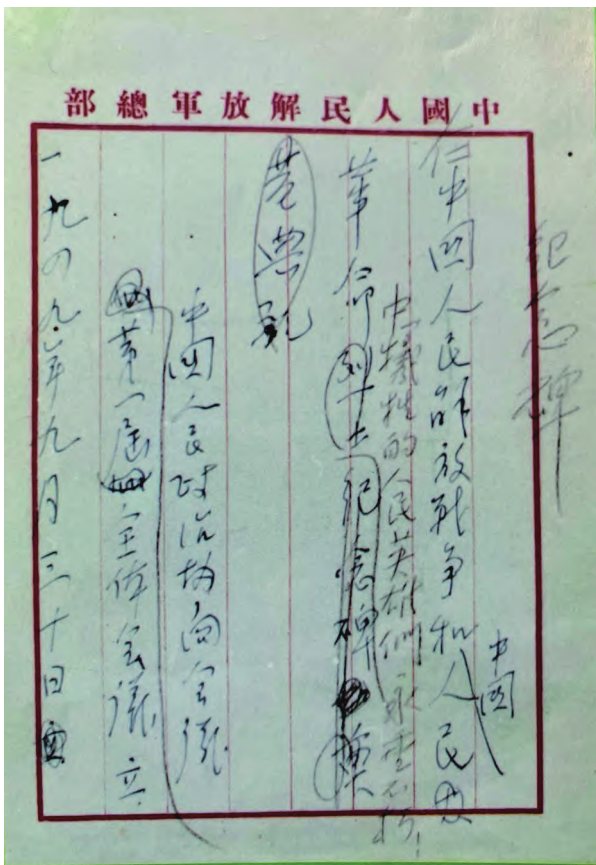 中國人民解放軍總部
紀念碑
在中國人民解放战争和人民
中國
中犧牲的人民英雄們永垂不朽!
革命烈士紀念碑奠
基典礼
中國人民政治协商会議
第一届全体会議立
一九四九年九月三十日